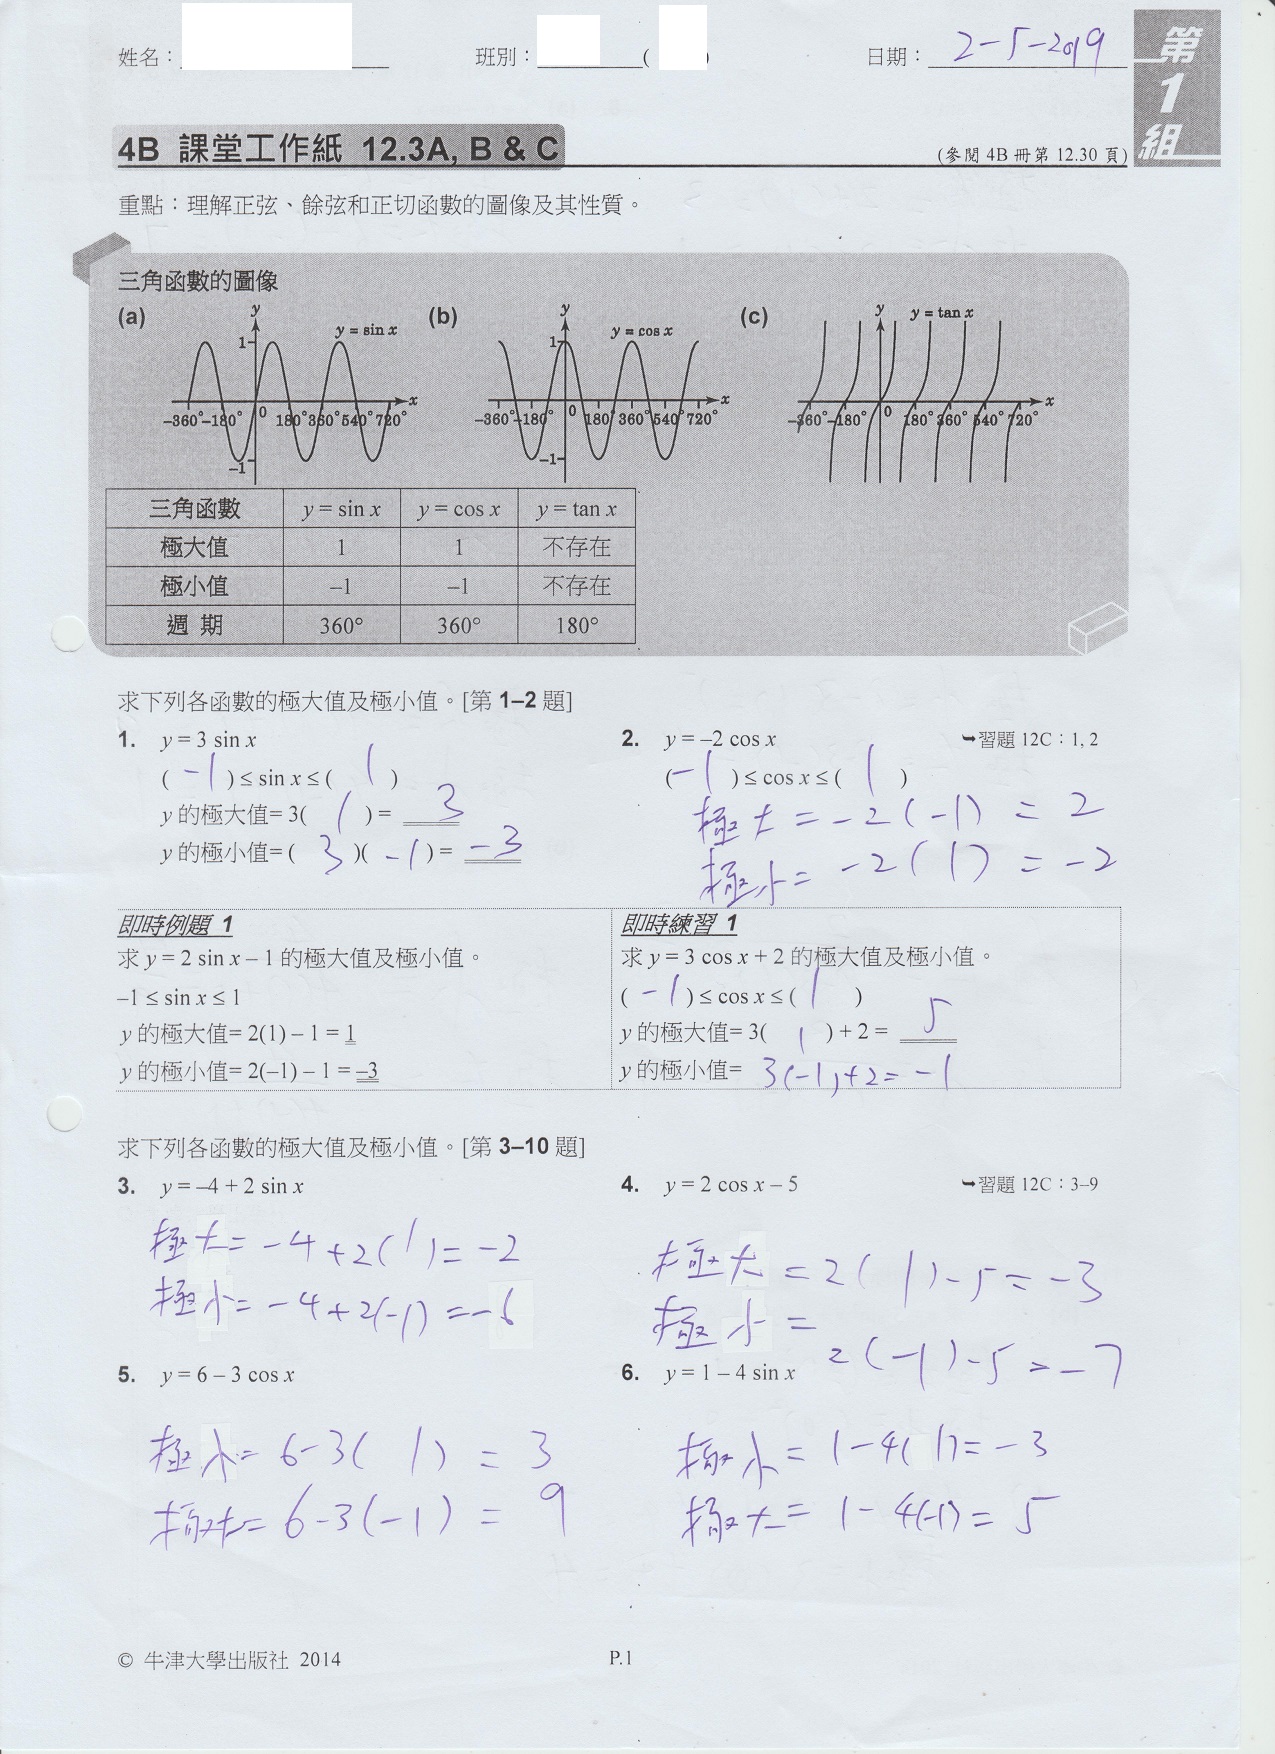 姓名：
班別： ( )
日期： 2-5-2019
第1組
4B 課堂工作紙 12.3A, B & C
(參閱 4B 冊第 12.30 頁)
重點：理解正弦、餘弦和正切函數的圖像及其性質。
三角函數的圖像
(a) y 1 y = sin x x –360° –180° 0 180° 360° 540° 720° –1
(b) y 1 y = cos x x –360° –180° 0 180° 360° 540° 720° –1
(c) y y = tan x x –360° –180° 0 180° 360° 540° 720°
三角函數 y = sin x y = cos x y = tan x
極大值 1 1 不存在
極小值 –1 –1 不存在
週 期 360° 360° 180°
求下列各函數的極大值及極小值。[第 1–2 題]
1. y = 3 sin x
( -1 ) ≤ sin x ≤ ( 1 )
y 的極大值= 3( 1 ) = 3
y 的極小值= ( 3 )( -1 ) = -3
2. y = –2 cos x
➥習題 12C：1, 2
( -1 ) ≤ cos x ≤ ( 1 )
極大 = -2 (-1) = 2
極小 = -2 ( 1) = -2
即時例題 1
求 y = 2 sin x – 1 的極大值及極小值。
–1 ≤ sin x ≤ 1
y 的極大值= 2(1) – 1 = 1
y 的極小值= 2(–1) – 1 = –3
即時練習 1
求 y = 3 cos x + 2 的極大值及極小值。
( -1 ) ≤ cos x ≤ ( 1 )
y 的極大值= 3( 1 ) + 2 = 5
y 的極小值= 3(-1)+2 = -1
求下列各函數的極大值及極小值。[第 3–10 題]
3. y = –4 + 2 sin x
極大 = -4 +2( 1)= -2
極小 = -4 +2(-1) = -6
4. y = 2 cos x – 5
➥習題 12C：3–9
極大 = 2( 1)-5 = -3
極小 =
2(-1)-5 = -7
5. y = 6 – 3 cos x
極小 = 6-3( 1) = 3
極大 = 6-3(-1) = 9
6. y = 1 – 4 sin x
極小 = 1-4( 1) = -3
極大 = 1-4(-1) = 5
© 牛津大學出版社 2014
P.1